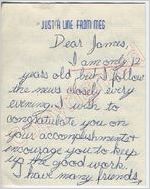 JUST A LINE FROM MEG
Dear James,
I am only 12
years old but I follow
the news closely every
evening. I wish to
congratulate you on
your accomplishments
encourage you to keep
up the good work!
I have many friends